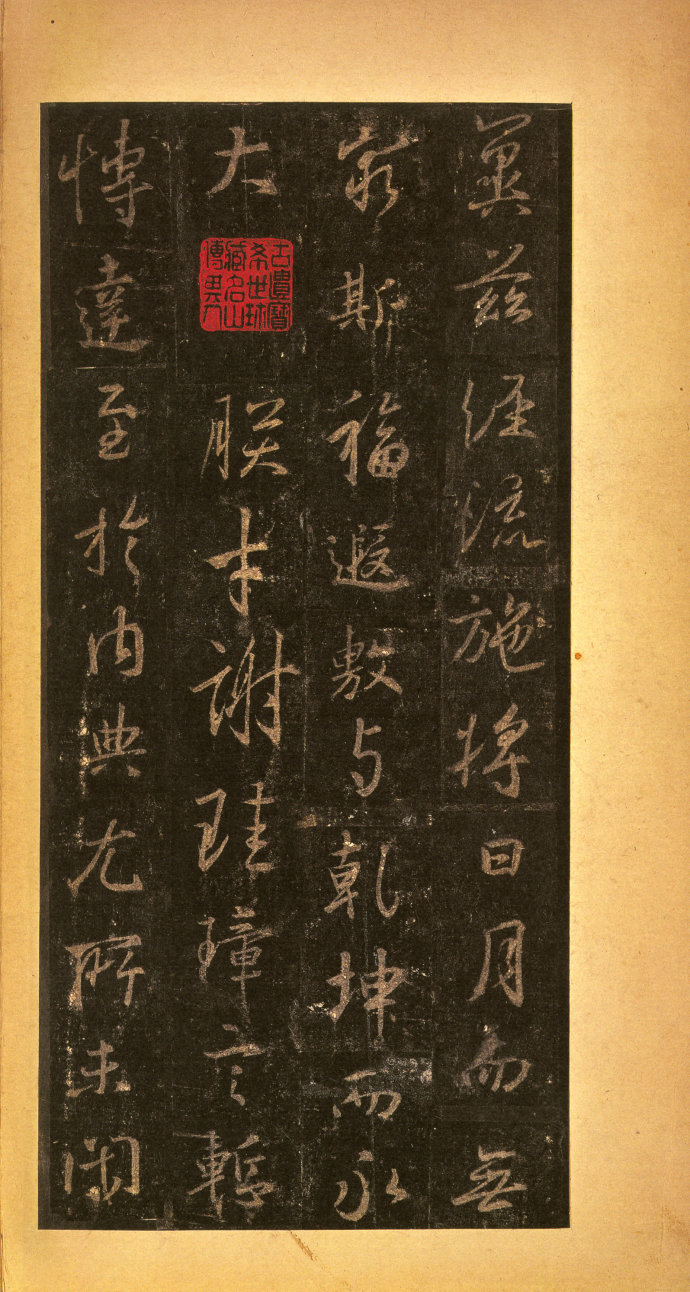 冀茲經流施將日月而無
窮斯福遐敷与乾坤而永
大
朕才謝珪璋言慙
博達至於內典尤所未閑
古遺寶
希世珍
藏名山
傳其人